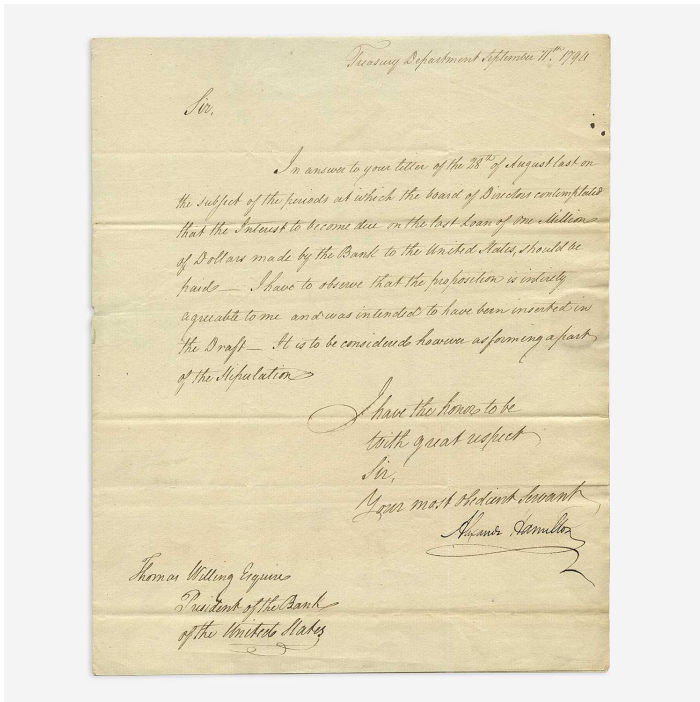 Treasury Department September 11th. 1794
Sir,
In answer to your letter of the 28th of August last on
the subject of the periods at which the board of Directors contemplated
that the Interest to become due on the last Loan of one Million
of Dollars made by the Bank to the United States, should be
paid— I have to observe that the proposition is intirely
agreeable to me and was intended to have been inserted in
the Draft— It is to be considered however as forming a part
of the Stipulation
I have the honor to be
with great respect
Sir,
Your most obedient Servant
Alexander Hamilton
Thomas Willing Esquire
President of the Bank
of the United States